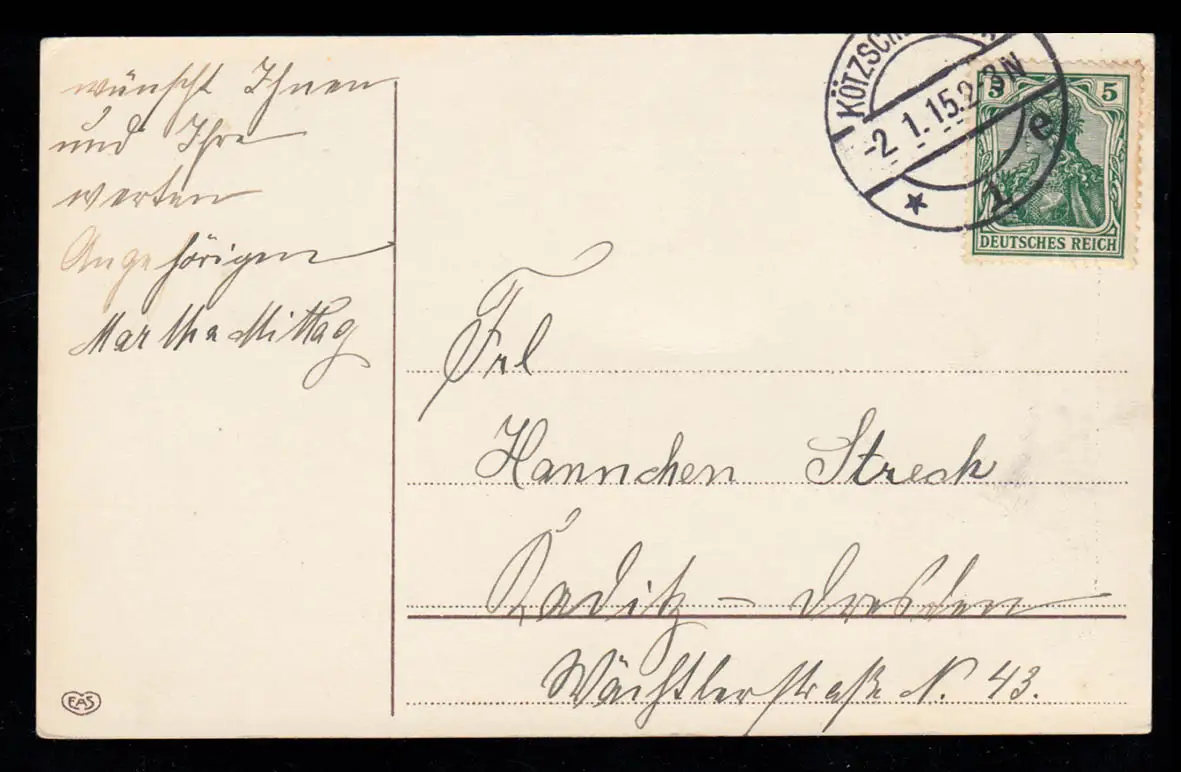 wünscht Ihnen
und Ihre
werten
Angehörigen
Martha Mittag
KÖTZSCH
-2. 1. 15. 2-3N
* 1 e
5 5
DEUTSCHES REICH
Frl
Hannchen Strech
Kaditz – Dresden
Wächtlerstraße N. 43.
EAS